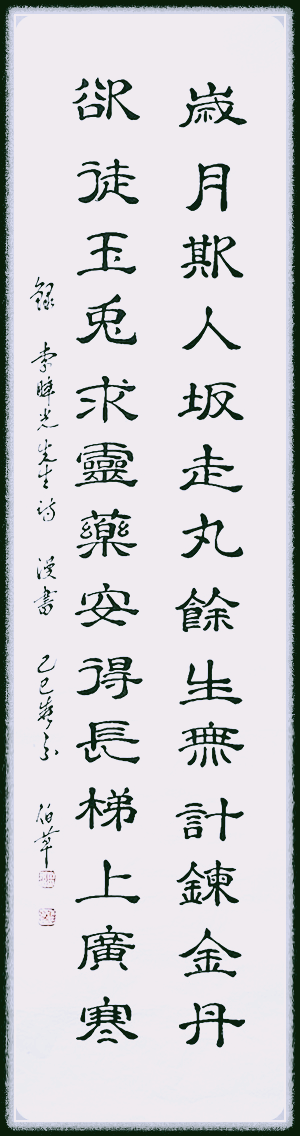 歲月欺人坂走丸餘生無計鍊金丹
欲從玉兔求靈藥安得長梯上廣寒
錄 暉光先生詩 漫書 己巳 伯華